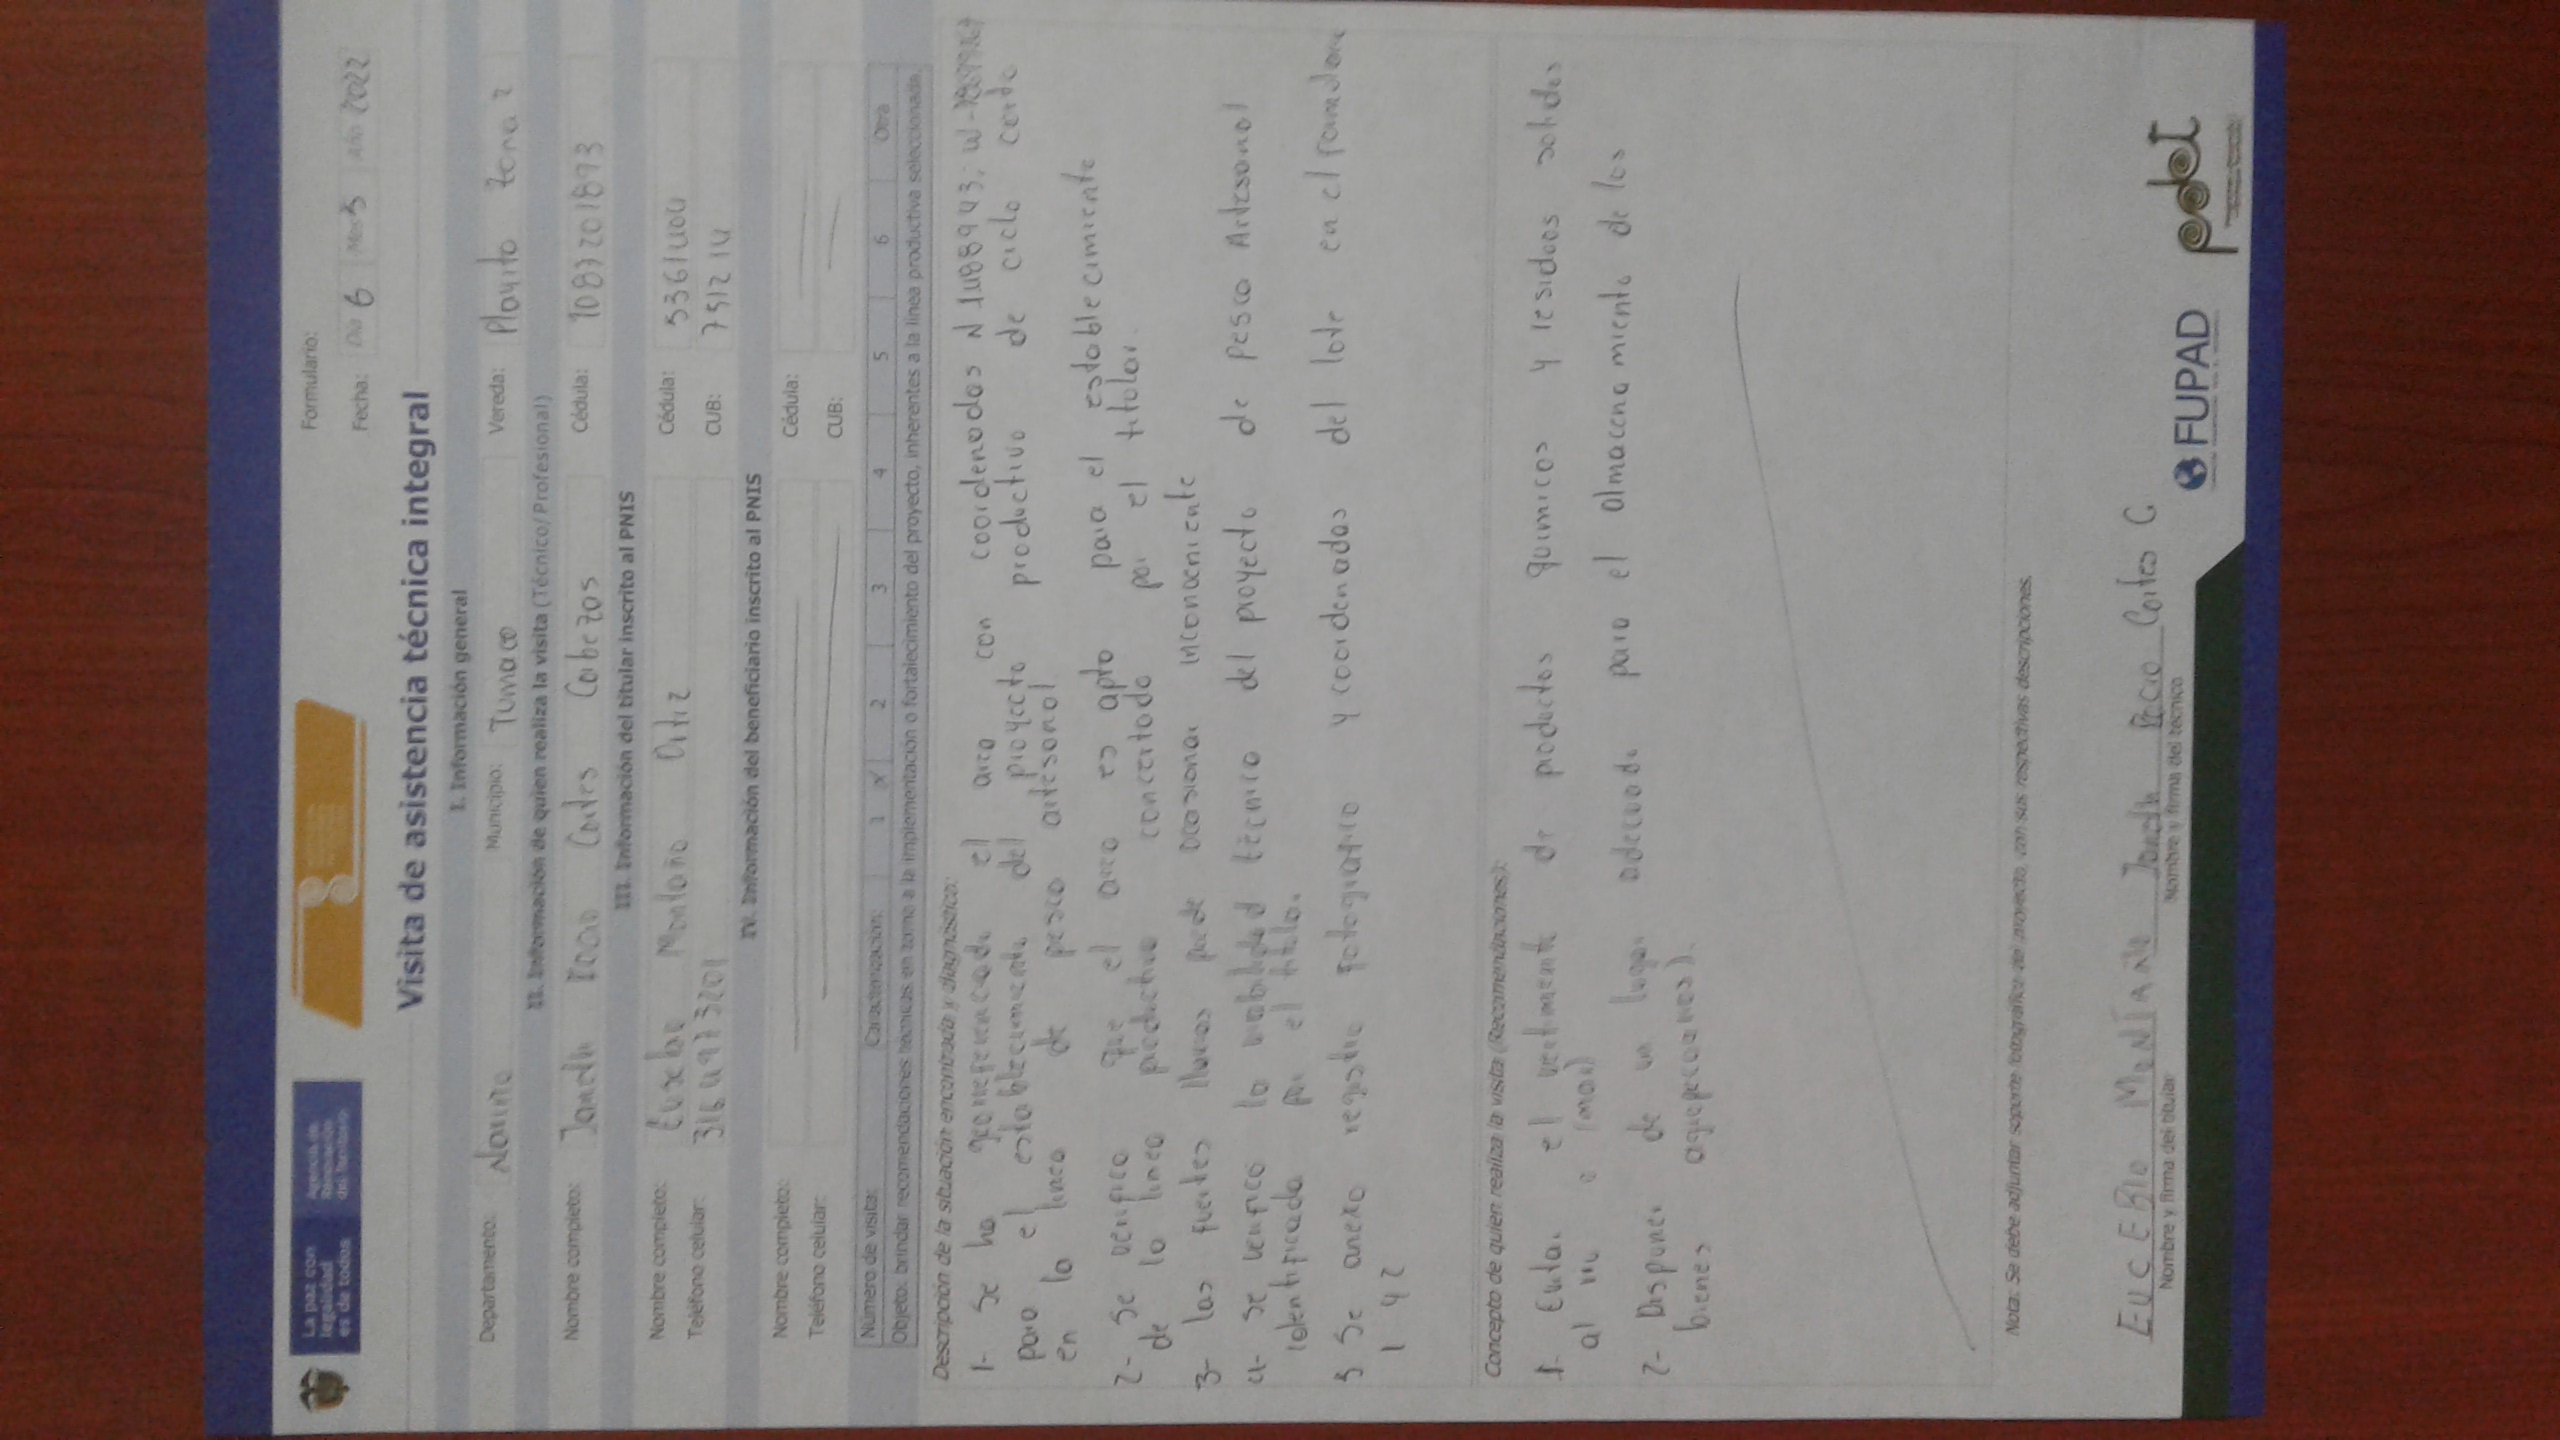 La paz con
legalidad
es de todos
Agencia de
Renovación
del Territorio
Formulario:
Fecha: Día 6 Mes 5 Año 2022
Visita de asistencia técnica integral
I. Información general
Departamento: Nariño Municipio: Tumaco Vereda: Playita zona 2
II. Información de quien realiza la visita (Técnico/Profesional)
Nombre completo: Cortes Cabezas Cédula: 1087201873
III. Información del titular inscrito al PNIS
Nombre completo: Eusebio Montaño Ortiz Cédula: 5361404
Teléfono celular: 3164973201 CUB: 751214
IV. Información del beneficiario inscrito al PNIS
Nombre completo: Cédula:
Teléfono celular: CUB:
Número de visita: Caracterización: 1 x 2 3 4 5 6 Otra
Objeto: brindar recomendaciones técnicas en torno a la implementación o fortalecimiento del proyecto, inherentes a la línea productiva seleccionada.
Descripción de la situación encontrada y diagnóstico:
1- Se ha georeferenciado el area con coordenadas N 1.488943; W-
para el establecimiento del proyecto productivo de ciclo corto
en la linea de pesca artesanal
2- Se verifico que el area es apto para el establecimiento
de la linea productiva concertado por el titular.
3- las fuertes lluvias puede ocasionar inconveniente
4- se verifico la viabilidad técnico del proyecto de pesca Artesanal
identificada por el titular.
5 Se anexo registro fotografico y coordenadas del lote en el formulario
1 y 2
Concepto de quien realiza la visita (Recomendaciones):
1- Evitar el vertimiento de productos quimicos y residuos solidos
al rio o (mar)
2- Disponer de un lugar adecuado para el almacenamiento de los
bienes agropecuarios).
Nota: Se debe adjuntar soporte fotográfico del proyecto, con sus respectivas descripciones.
EUCEBIO MONTAÑO
Nombre y firma del titular
Cortes C
Nombre y firma del técnico
FUPAD
pdet